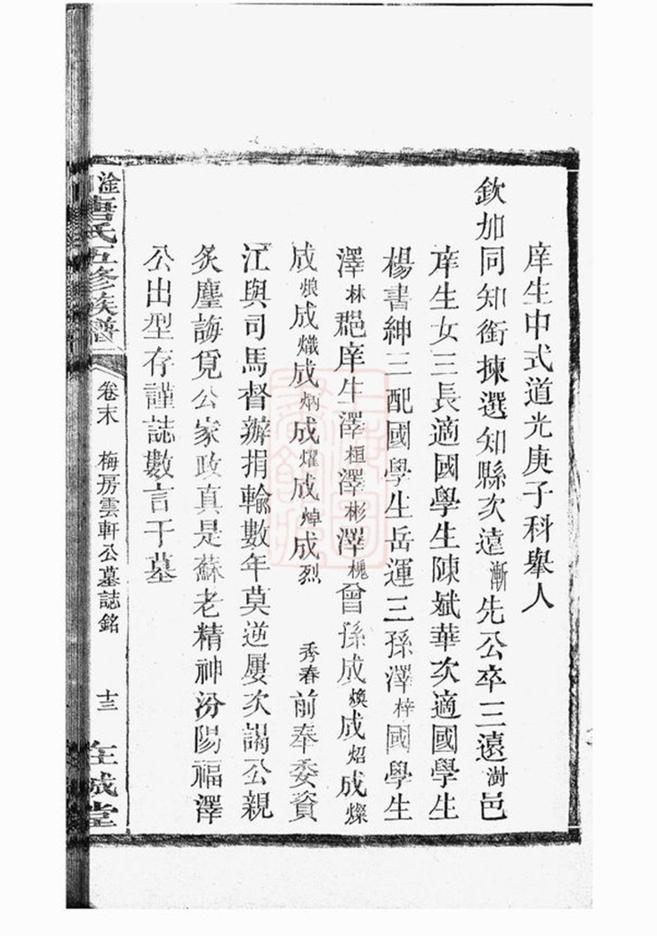 庠生中式道光庚子科舉人
欽加同知銜揀選知縣次遠漸先公卒三遠澍邑
庠生女三長適國學生陳斌華次適國學生
楊書紳三配國學生岳運三孫澤梓國學生
澤林郡庠生澤桓澤彬澤槐曾孫成煥成炤成燦
成烺成熾成炳成燿成焯成烈 秀春前奉委資
江與司馬督辦捐輸數年莫逆屢次謁公親
炙麈誨覓公家政真是蘇老精神汾陽福澤
公出型存謹誌數言于墓
唐氏五修族譜 卷末 梅房雲軒公墓誌銘 十三 堂